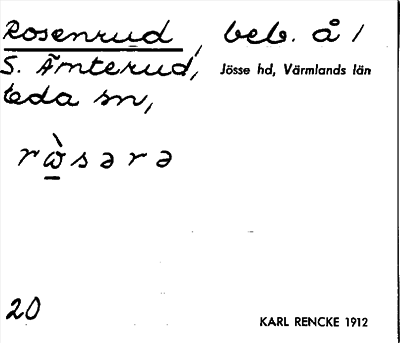 Rosenrud, beb. å /
S. Ämterud, Jösse hd, Värmlands län
Eda sn,
rὼsərə
20
KARL RENCKE 1912